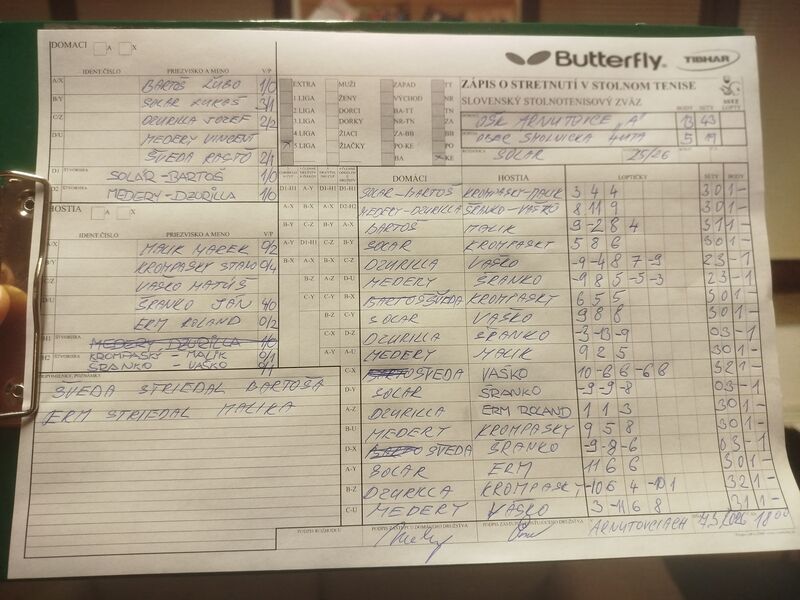 DOMÁCI A X
Butterfly TIBHAR
IDENT.ČÍSLO PRIEZVISKO A MENO V/P
A/X BARTOŠ ĽUBO 1/0
B/Y SOLÁR LUKÁŠ 3/1
C/Z DZURILLA JOZEF 2/2
D/U MEDERY VINCENT
ŠVEDA RASŤO 2/1
D1 ŠTVORHRA SOLÁR-BARTOŠ 1/0
D2 MEDERY-DZURILLA 1/0
HOSTIA A X
IDENT.ČÍSLO PRIEZVISKO A MENO V/P
A/X MALIK MAREK 0/2
B/Y KROMPASKÝ STANO 0/4
C/Z VAŠKO MATÚŠ
D/U ŠRANKO JÁN 4/0
ERM ROLAND 0/2
H1 ŠTVORHRA MEDERY DZURILLA 1/0
H2 ŠTVORHRA KROMPASKÝ - MALIK 0/1
ŠRANKO - VAŠKO
ŠVEDA STRIEDAL BARTOŠA
ERM STRIEDAL MALIKA
EXTRA MUŽI ZÁPAD TT
1 LIGA ŽENY VÝCHOD NR
2 LIGA DORCI BA-TT TN
3 LIGA DORKY NR-TN BA
4 LIGA ŽIACI ZA-BB
5 LIGA PO-KE KE
ZÁPIS O STRETNUTÍ V STOLNOM TENISE
SLOVENSKÝ STOLNOTENISOVÝ ZVÄZ BODY SETY LOPTY
OŠK ARNUTOVCE "A" 13 43
OBEC SMOLNÍCKA HUTA 5 19
SOLÁR 25/26
DOMÁCI HOSTIA LOPTIČKY SETY BODY
SOLÁR-BARTOŠ KROMPASKÝ-MALIK 3 4 4 3 0 1 -
MEDERY-DZURILLA ŠRANKO-VAŠKO 8 11 9 3 0 1 -
BARTOŠ MALIK 9 -2 8 4 3 1 1 -
SOLÁR KROMPASKÝ 5 8 6 3 0 1 -
DZURILLA VAŠKO -9 -4 8 7 -9 2 3 - 1
MEDERY ŠRANKO -9 8 5 -5 -3 2 3 - 1
BARTOŠ ŠVEDA KROMPASKÝ 6 5 5 3 0 1 -
SOLÁR VAŠKO 9 8 8 3 0 1 -
DZURILLA ŠRANKO -3 -13 -9 0 3 - 1
MEDERY MALIK 9 2 5 3 0 1 -
C-X ŠVEDA VAŠKO 10 -8 6 -6 8 3 2 1 -
D-Y SOLÁR ŠRANKO -9 -9 -8 0 3 - 1
A-Z DZURILLA ERM ROLAND 1 1 3 3 0 1 -
B-U MEDERY KROMPASKÝ 9 5 8 3 0 1 -
D-X ŠVEDA ŠRANKO -9 -8 -6 0 3 - 1
A-Y SOLÁR ERM 11 6 6 3 0 1 -
B-Z DZURILLA KROMPASKÝ -10 6 4 -10 1 3 2 1 -
C-U MEDERY VAŠKO 3 -11 6 8 3 1 1 -
PODPIS ROZHODCU PODPIS ZÁSTUPCU DOMÁCEHO DRUŽSTVA PODPIS ZÁSTUPCU HOSŤUJÚCEHO DRUŽSTVA ARNUTOVCIACH 7.3.2026 18:00